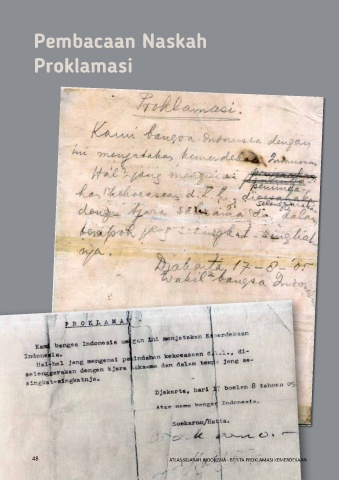 Pembacaan Naskah
Proklamasi
Proklamasi.
Kami bangsa Indonesia dengan
ini menjatakan kemerdekaan Indonesia.
Hal² jang mengenai
pemindahan
kekoeasaan d.l.l., diselenggarakan
dengan tjara saksama dan dalam
tempoh jang sesingkat-singkat-
nja.
Djakarta 17-8-'05
Wakil² bangsa Indonesia
P R O K L A M A S I
Kami bangsa Indonesia dengan ini menjatakan Kemerdekaan
Indonesia.
Hal-hal jang mengenai pemindahan kekoeasaan d.l.l., di-
selenggarakan dengan tjara saksama dan dalam tempo jang se-
singkat-singkatnja.
Djakarta, hari 17 boelan 8 tahoen 05
Atas nama bangsa Indonesia.
Soekarno/Hatta.
48
ATLAS SEJARAH INDONESIA - BERITA PROKLAMASI KEMERDEKAAN